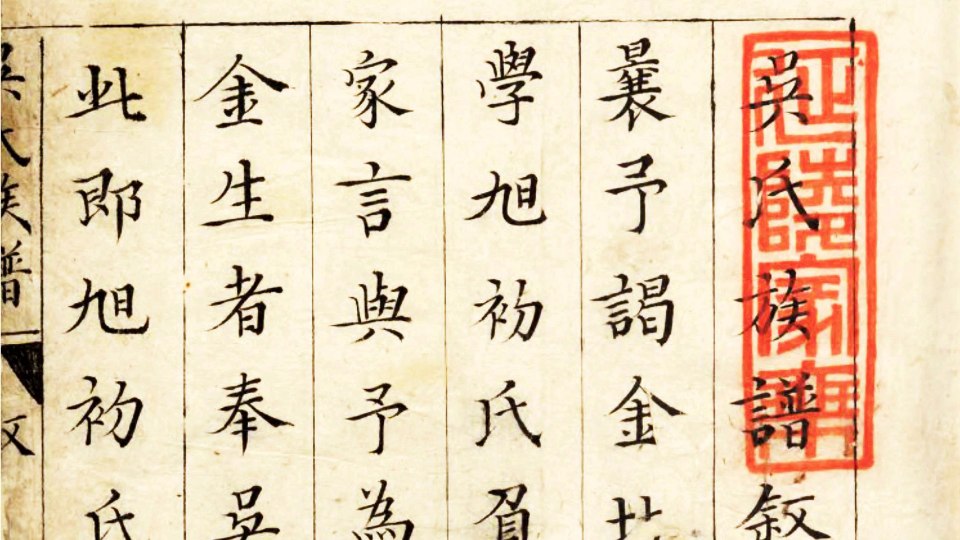 吳氏族譜敘
曩予謁金
學旭初氏
家言與予為
金生者奉吳
此即旭初氏
吳氏族譜
延陵家